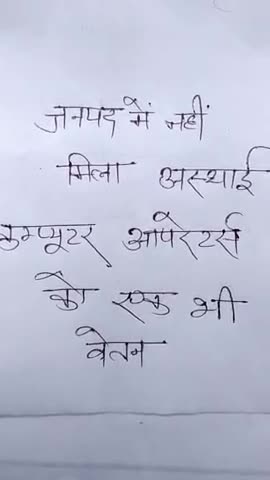 जनपद में नहीं
मिला अस्थाई
कम्प्यूटर आपरेटर्स
को एक भी
वेतन